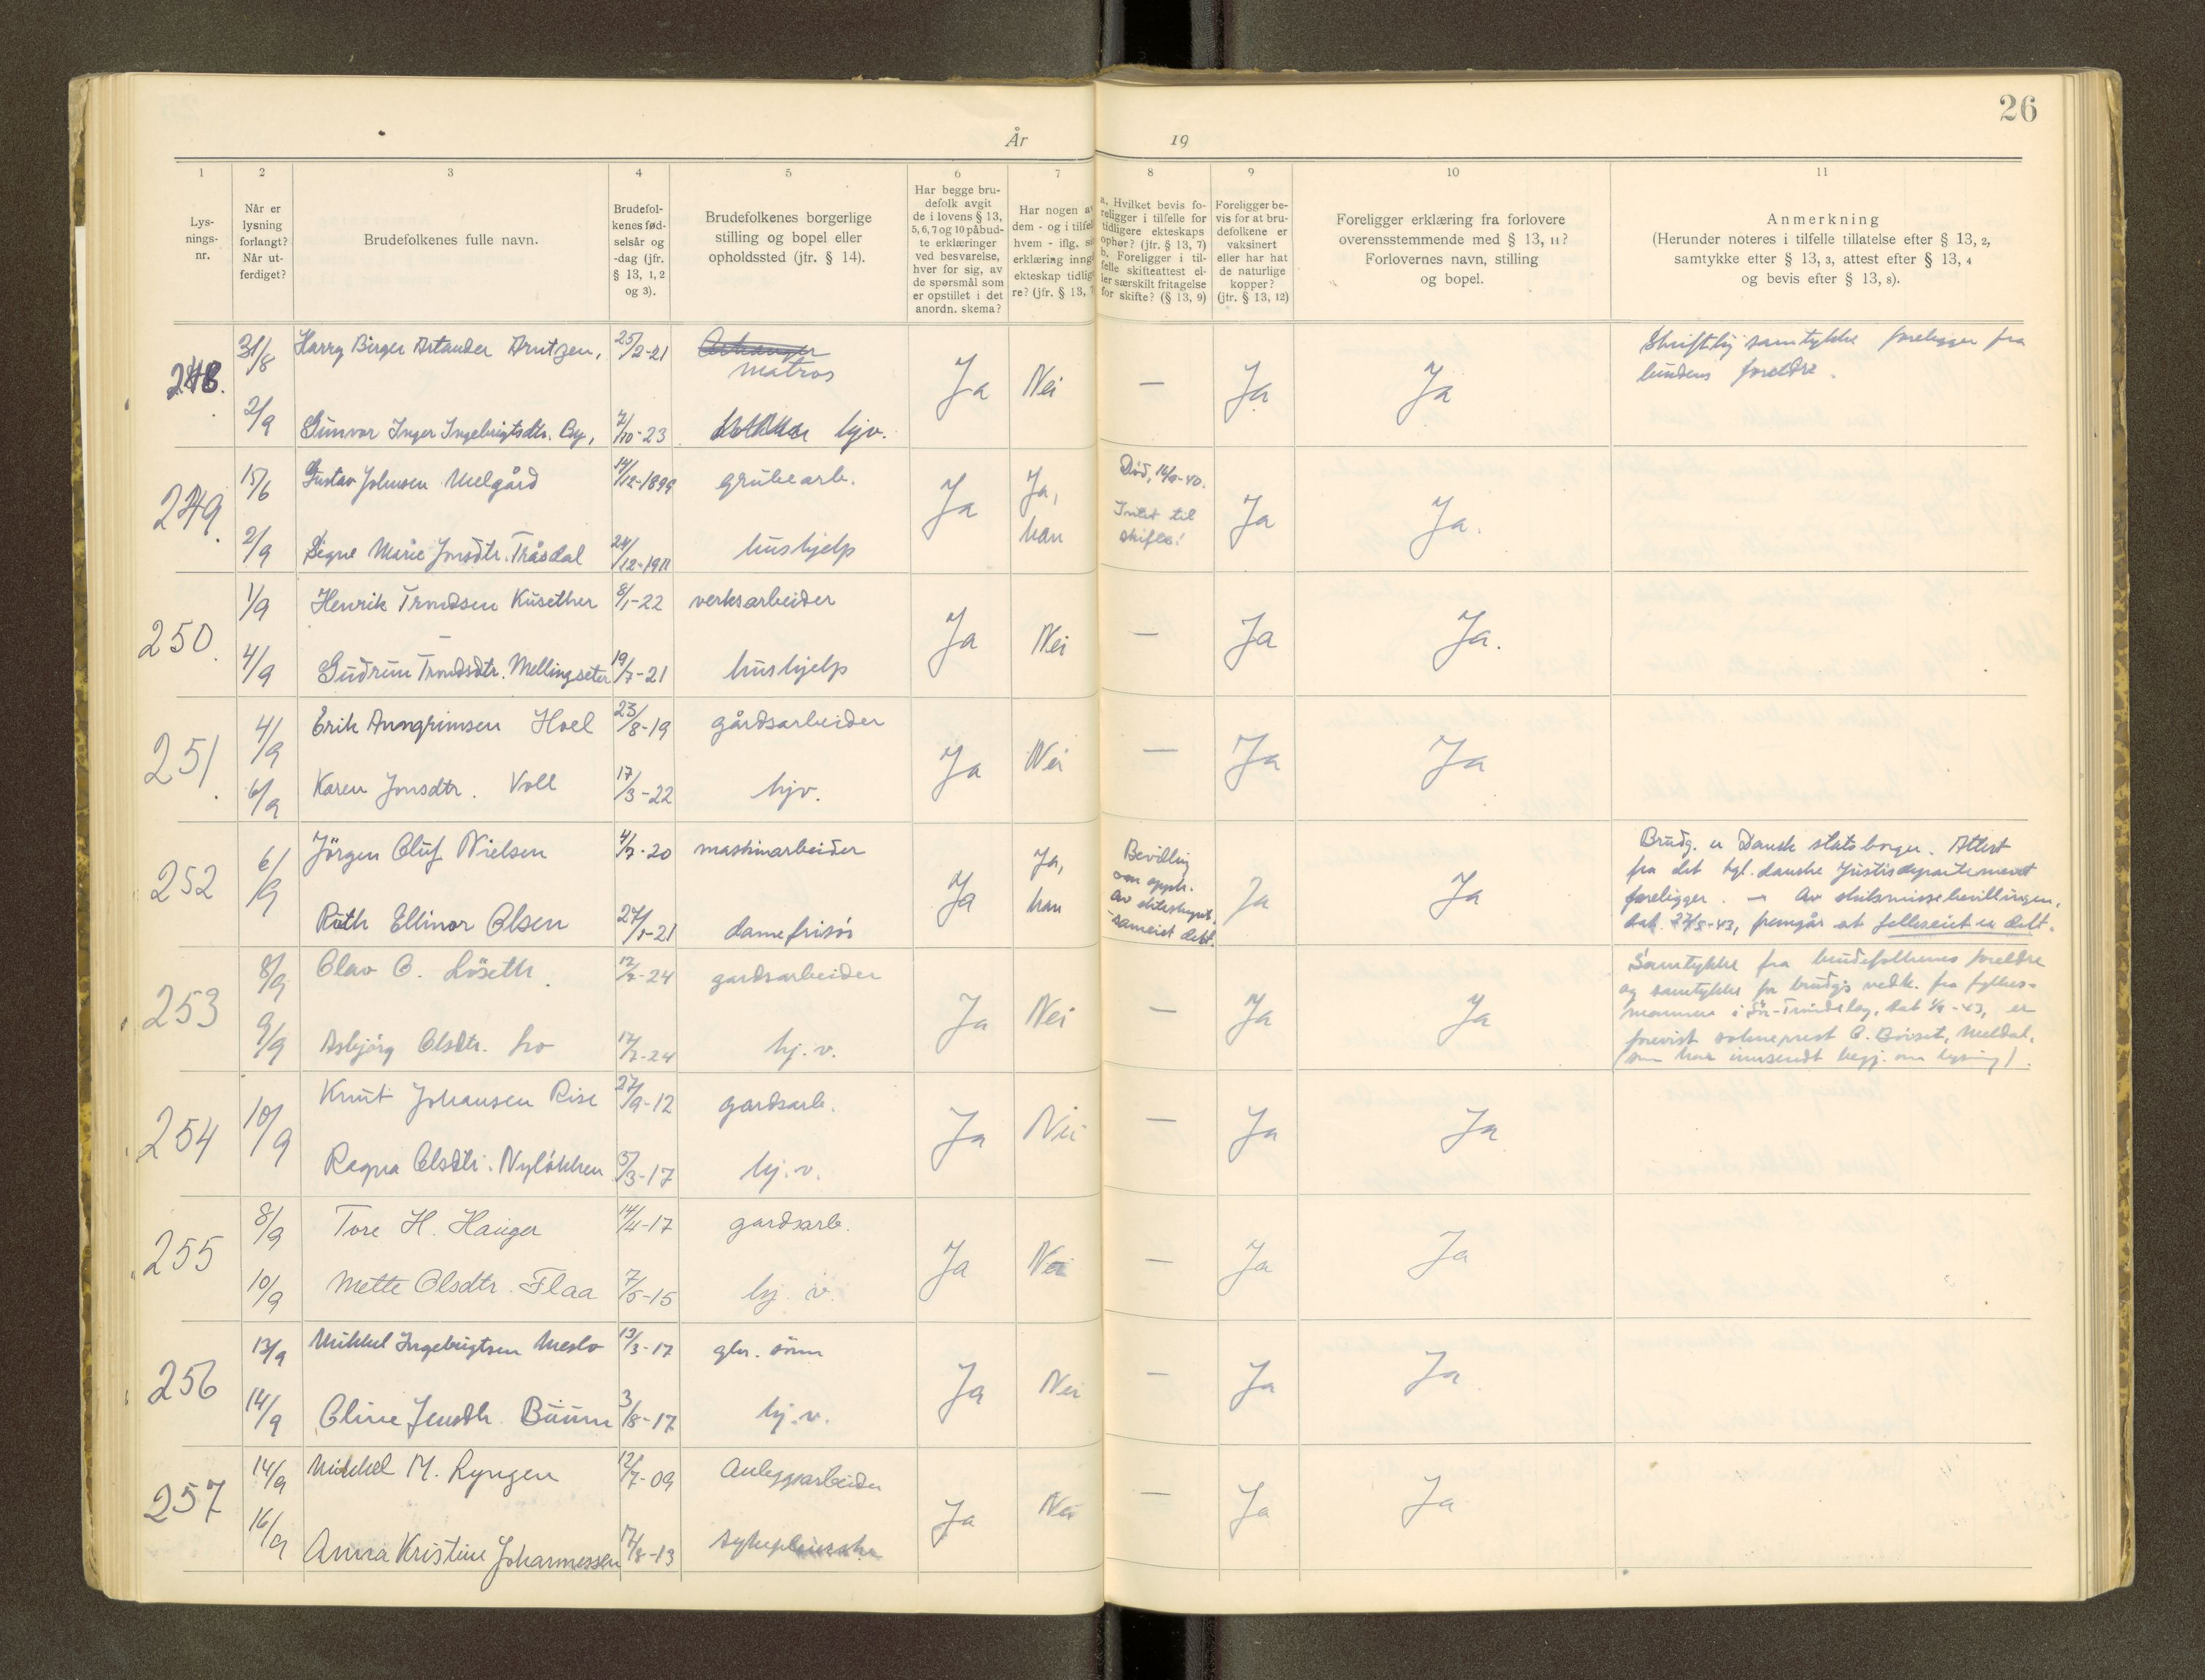 26
År 19
1 2 3 4 5 6 7 8 9 10 11
Lys-
nings-
nr.
Når er
lysning
forlangt?
Når ut-
ferdiget?
Brudefolkenes fulle navn.
Brudefol-
kenes fød-
selsår og
-dag (jfr.
§ 13, 1, 2
og 3).
Brudefolkenes borgerlige
stilling og bopel eller
opholdssted (jfr. § 14).
Har begge bru-
defolk avgit
de i lovens § 13,
5, 6, 7 og 10 påbud-
te erklæringer
ved besvarelse,
hver for sig, av
de spørsmål som
er opstillet i det
anordn. skema?
Har nogen av
dem - og i tilfel
hvem - iflg. si
erklæring inng
ekteskap tidlig
re? (jfr. § 13, 7
a. Hvilket bevis fo-
religger i tilfelle for
tidligere ekteskaps
ophør? (jfr. § 13, 7)
b. Foreligger i til-
felle skifteattest el-
ler særskilt fritagelse
for skifte? (§ 13, 9)
Foreligger be-
vis for at bru-
defolkene er
vaksinert
eller har hat
de naturlige
kopper?
(jfr. § 13, 12)
Foreligger erklæring fra forlovere
overensstemmende med § 13, 11?
Forlovernes navn, stilling
og bopel.
Anmerkning
(Herunder noteres i tilfelle tillatelse efter § 13, 2,
samtykke etter § 13, 3, attest efter § 13, 4
og bevis efter § 13, 8).
248. 31/8 Harry Birger Astander Arntzen, 25/2-21
matros
Ja Nei — Ja Ja
Skriftlig samtykke foreligger fra
brudens foreldre.
2/9 Gunvor Inger Ingebrigtsdtr. By, 7/10-23 hjv.
249. 15/6 Gustav Johnsen Melgård 14/12-1899 grubearb.
Ja Ja,
han
Død, 16/9-40.
Intet til
skifte!
Ja Ja.
2/9 Signe Marie Jonsdtr. Tråsdal 24/12-1911 hushjelp
250. 1/9 Henrik Trondsen Kusether 8/1-22 verksarbeider
Ja Nei — Ja Ja.
4/9 Gudrun Trondsdtr. Mellingseter 19/7-21 hushjelp
251. 4/9 Erik Arngrimsen Hoel 23/8-19 gårdsarbeider
Ja Nei — Ja Ja
6/9 Karen Jonsdtr. Voll 17/3-22 hjv.
252 6/9 Jörgen Oluf Nielsen 4/7-20 maskinarbeider
Ja Ja,
han
Bevilling
om opph.
av ekteskapet.
sameiet delt.
Ja Ja
Brudg. er Dansk statsborger. Attest
fra det kgl. danske Justisdepartement
foreligger. — Av skilsmissebevillingen,
dat. 27/5-43, fremgår at felleseiet er delt.
Ruth Ellinor Olsen 27/1-21 damefrisör
253 8/9 Olav O. Löseth. 12/2-24 gardsarbeider
Ja Nei — Ja Ja
Samtykke fra brudefolkenes foreldre
og samtykke for brudg's vedk. fra fylkes-
mannen i Sör-Tröndelag, dat 1/9-43, er
forevist sokneprest O. Böiset, Meldal,
(som har innsendt begj. om lysning).
9/9 Asbjörg Olsdtr. Lo 17/7-24 hj.v.
254 10/9 Knut Johansen Rise 27/9-12 gardsarb.
Ja Nei — Ja Ja
Ragna Olsdtr. Nylökken 5/3-17 hj.v.
255 8/9 Tore H. Hauger 14/4-17 gardsarb.
Ja Nei — Ja Ja
10/9 Mette Olsdtr. Flaa 7/5-15 hj. v.
256 13/9 Mikkel Ingebrigtsen Meslo 13/3-17 gbr. sönn
Ja Nei — Ja Ja
14/9 Oline Jensdtr. Buum 3/8-17 hj.v.
257 14/9 Mikkel M. Ryngen 12/7-09 Anleggsarbeider
Ja Nei — Ja Ja
16/9 Anna Kristine Johannessen 17/8-13 sykepleierske